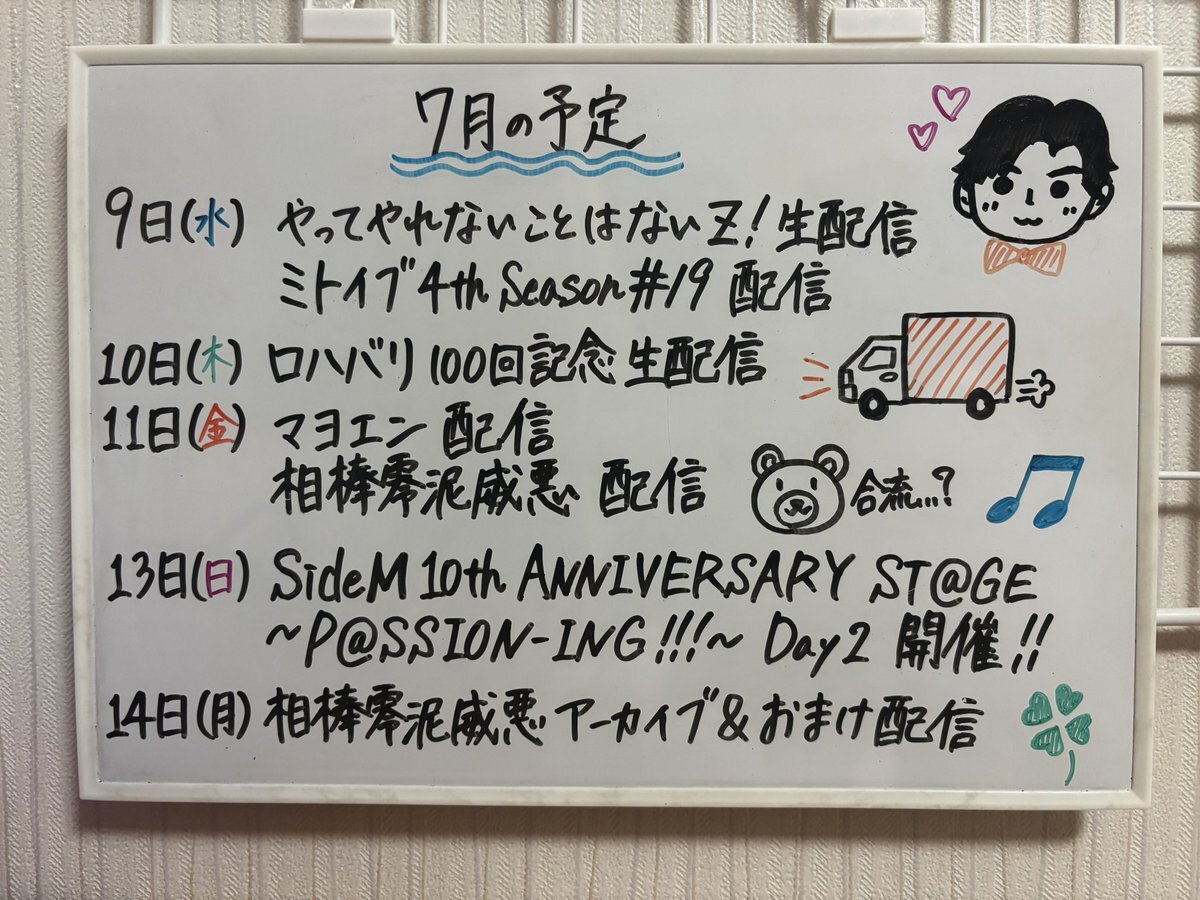 7月の予定
9日(水) やってやれないことはないZ!生配信
ミトイブ4th Season#19 配信
10日(木) ロハバリ100回記念 生配信
11日(金) マヨエン 配信
相棒零泥威悪 配信
合流...?
13日(日) SideM 10th ANNIVERSARY ST@GE
~P@SSION-ING!!!~ Day2 開催!!
14日(月) 相棒零泥威悪 アーカイブ&おまけ配信